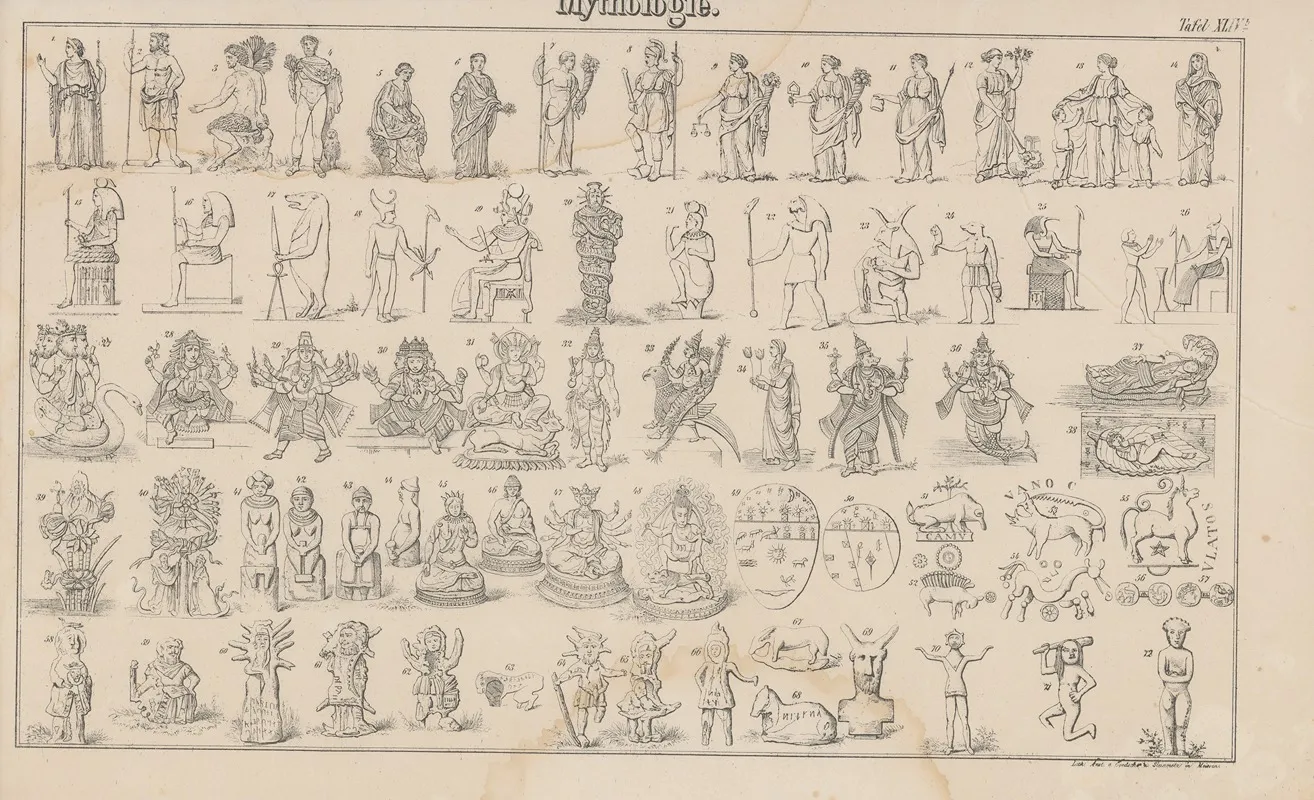 Mythologie.
Tafel XLIV b
1 2 3 4 5 6 7 8 9 10 11 12 13 14
15 16 17 18 19 20 21 22 23 24 25 26
27 28 29 30 31 32 33 34 35 36 37
38
39 40 41 42 43 44 45 46 47 48 49 50 51 53 55
VANO C
CAMV
VLATOS
52 54 56 57
58 59 60 61 62 63 64 65 66 67 69 70 71 72
68
Lith. Anst. v.
in Meissen